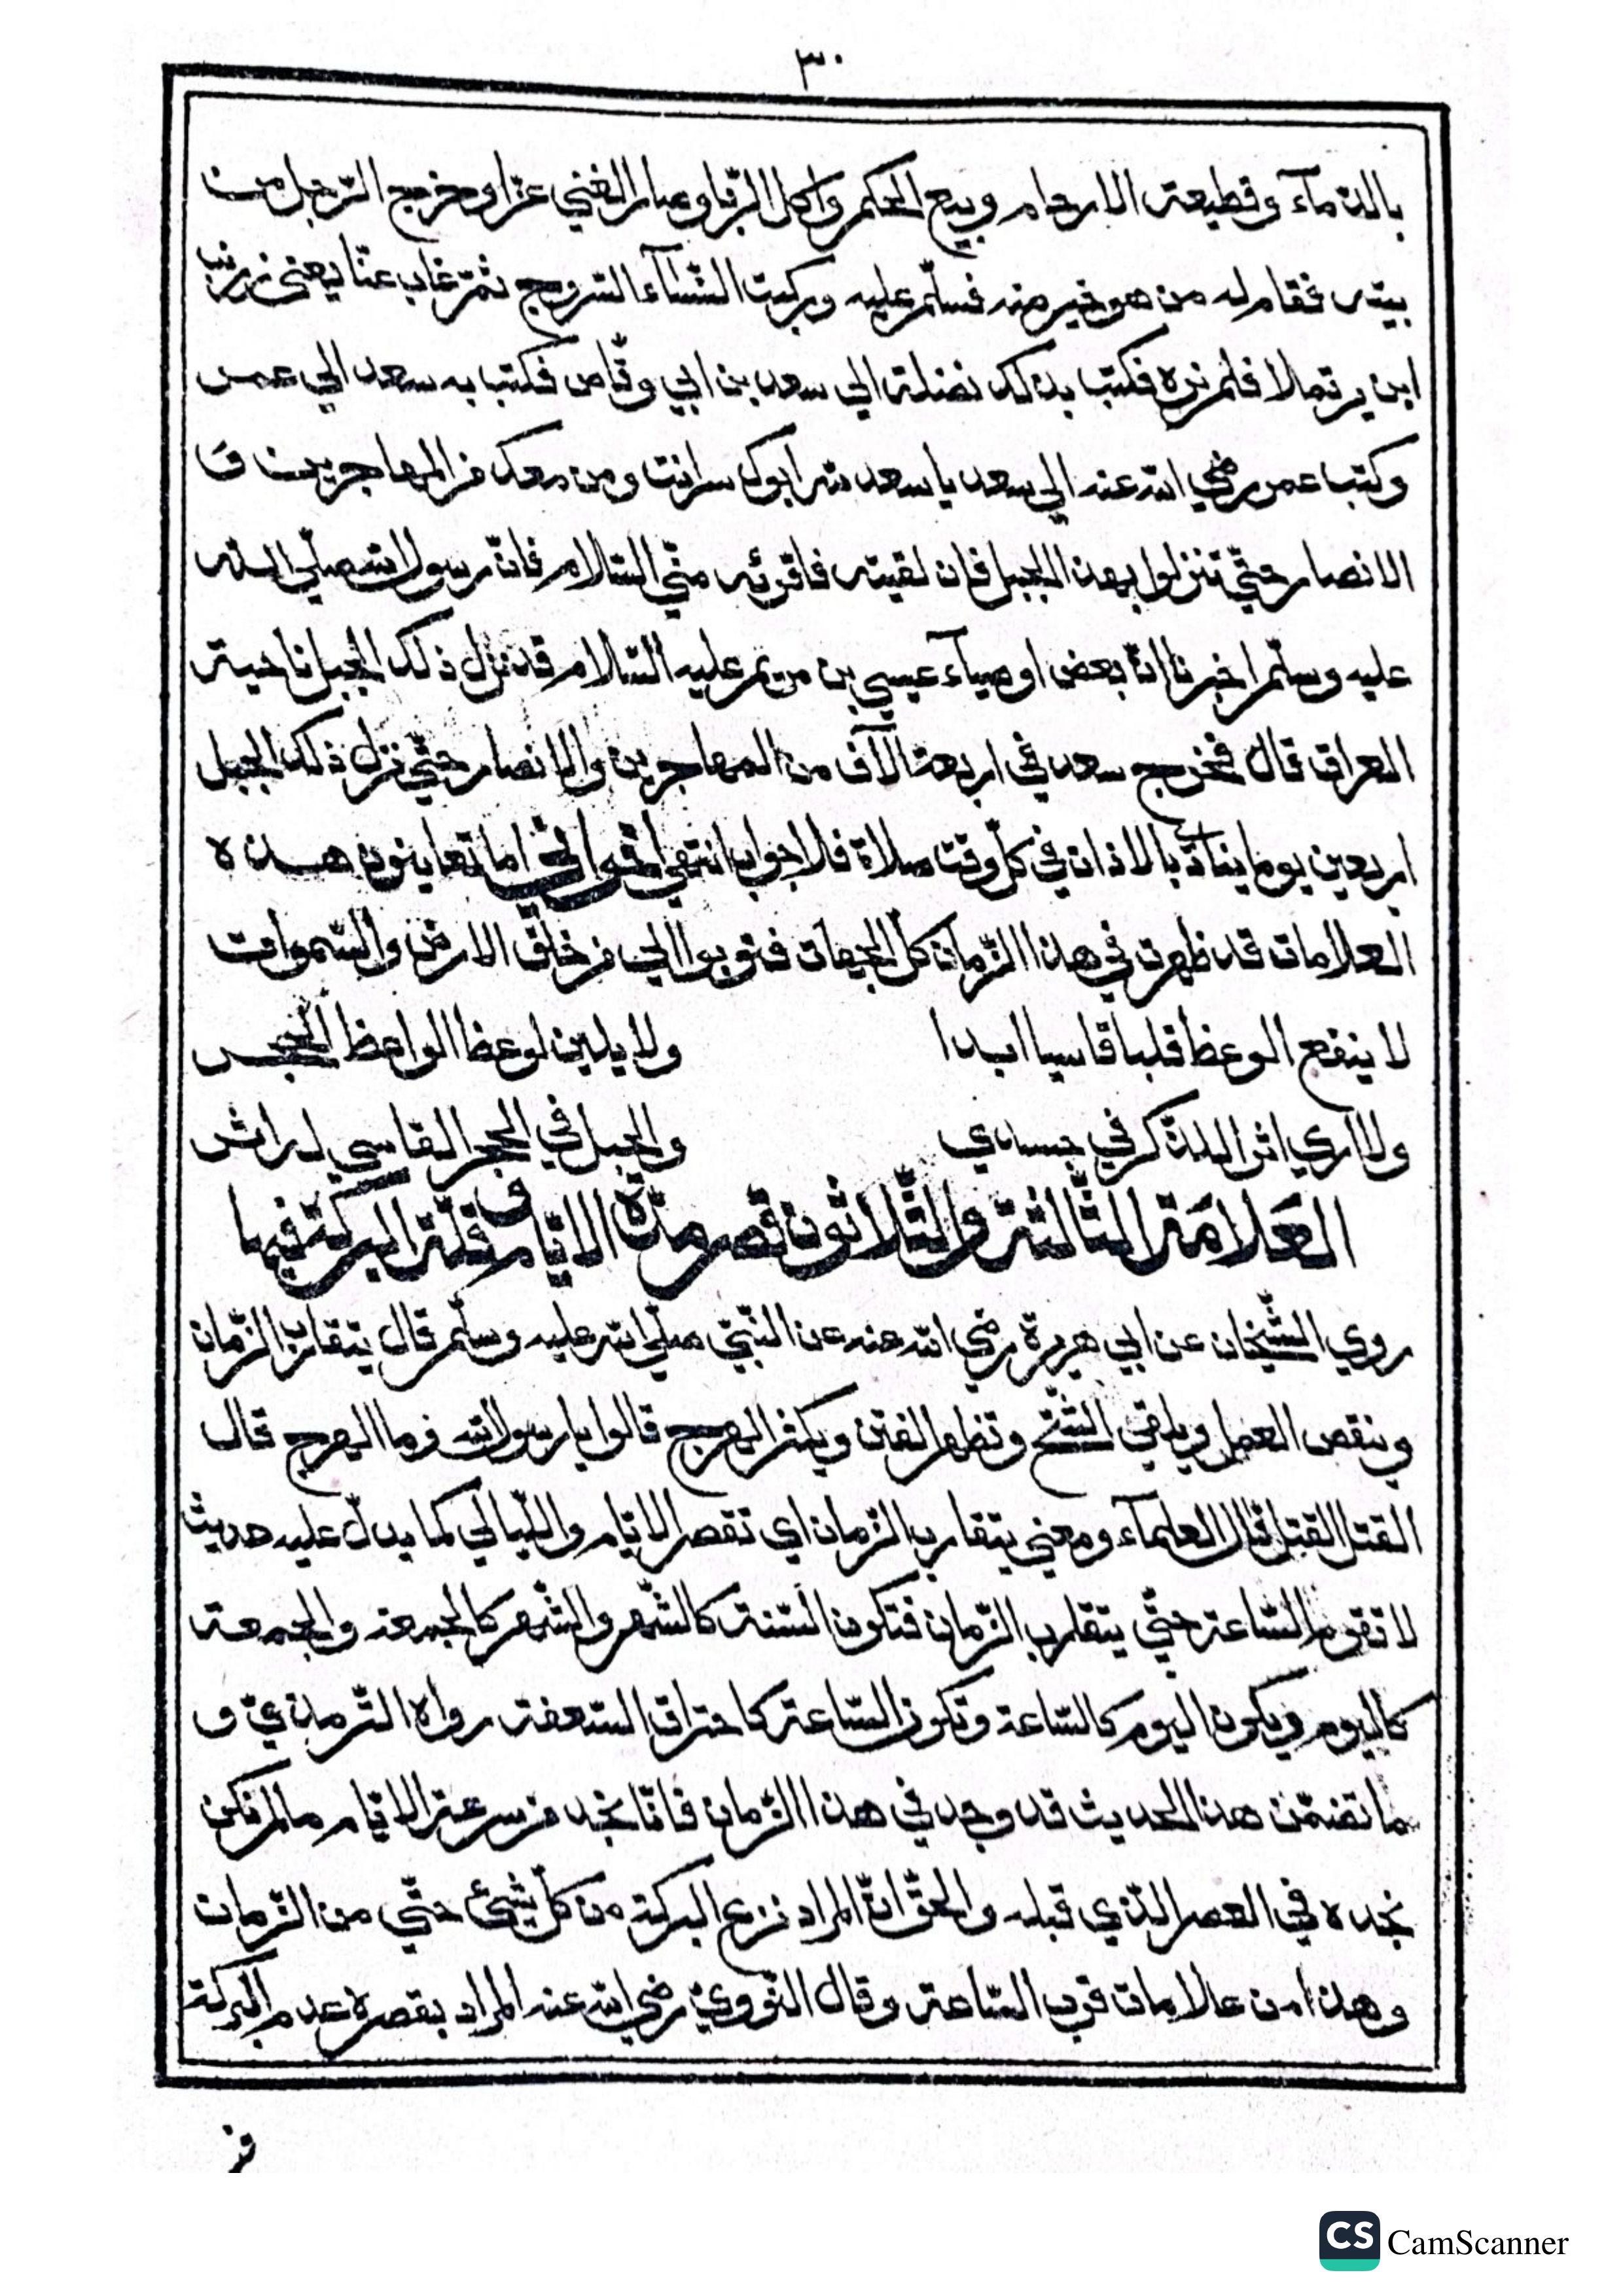 ٣٠
بالدّمآء وقطيعة الارحام وبيع الحكم واكل الرّبا وصار الغني عزّا وخرج الرّجل من
بيته فقام له من هو خير منه فسلّم عليه وركبت النّسآء السّروج ثمّ غاب عنّا يعني زرنب
ابن برتملا فلم نره فكتب بذلك نضلة الي سعد بن ابي وقّاص فكتب به سعد الي عمر
وكتب عمر رضي الله عنه الي سعد يا سعد لله ابوك سر انت ومن معك من المهاجرين و
الانصار حتّي تنزلوا بهذا الجبل فان لقيته فاقرئه منّي السّلام فانّ رسول الله صلّي الله
عليه وسلّم اخبرنا انّ بعض اوصيآء عيسي بن مريم عليه السّلام قد نزل ذلك الجبل ناحية
العراق قال فخرج سعد في اربعة آلاف من المهاجرين والانصار حتّي نزل ذلك الجبل
اربعين يوما ينادي بالاذان في كلّ وقت صلاة فلا جواب انتهي اخواني اما تعاينون هذه
العلامات قد ظهرت في هذا الزّمان كلّ الجهات فتوبوا الي من خلق الارض والسّموات
لا ينفع الوعظ قلبا قاسيا ابدا ولا يلين لوعظ الواعظ الحجر
ولا اري اثر الذّكر في جسدي والحبل في الحجر القاسي له اثر
العَلامَة الثّالثة والثّلاثون قصر مدّة الايّام وقلّة البركة فيها
روي الشّيخان عن ابي هريرة رضي الله عنه عن النّبيّ صلّي الله عليه وسلّم قال يتقارب الزّمان
وينقص العمل ويلقي الشّحّ وتظهر الفتن ويكثر الهرج قالوا يا رسول الله وما الهرج قال
القتل القتل قال العلمآء ومعني يتقارب الزّمان اي تقصر الايّام واللّيالي كما يدلّ عليه حديث
لا تقوم السّاعة حتّي يتقارب الزّمان فتكون السّنة كالشّهر والشّهر كالجمعة والجمعة
كاليوم ويكون اليوم كالسّاعة وتكون السّاعة كاحتراق السّعفة رواه التّرمذيّ و
ما تضمّن هذا الحديث قد وجد في هذا الزّمان فانّا نجد من سرعة الايّام ما لم نكن
نجده في العصر الّذي قبله والحقّ انّ المراد نزع البركة من كلّ شيئ حتّي من الزّمان
وهذا من علامات قرب السّاعة وقال النّوويّ رضي الله عنه المراد بقصره عدم البركة
من
CS CamScanner